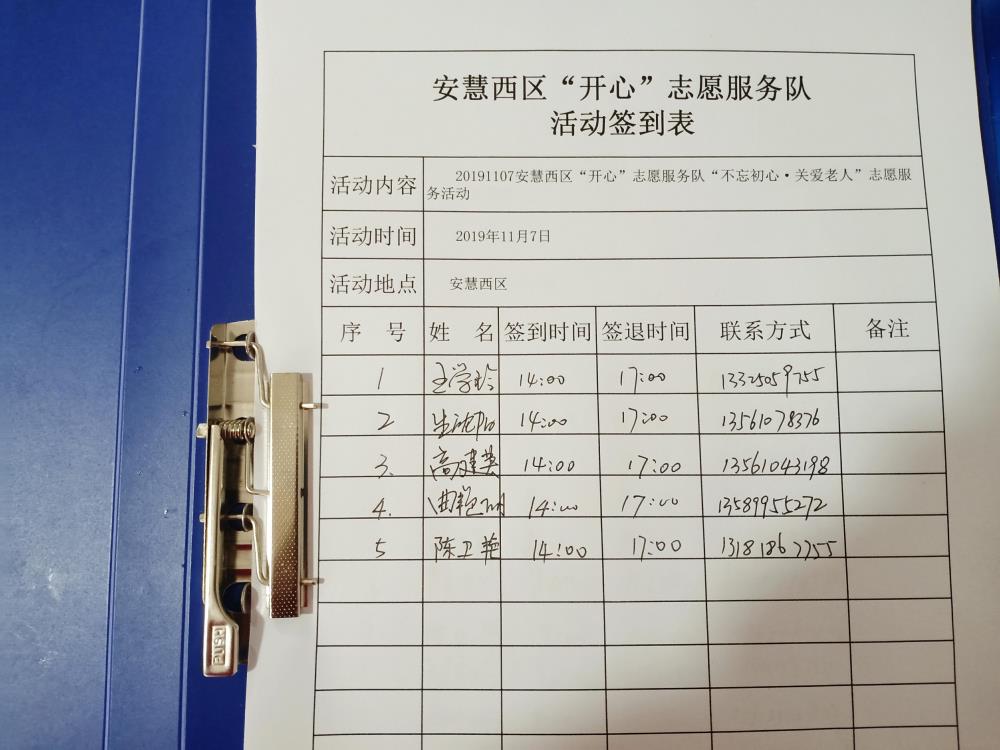 安慧西区“开心”志愿服务队
活动签到表
活动内容 20191107安慧西区“开心”志愿服务队“不忘初心·关爱老人”志愿服
务活动
活动时间 2019年11月7日
活动地点 安慧西区
序 号 姓 名 签到时间 签退时间 联系方式 备注
1 王学玲 14:00 17:00 13325059755
2 14:00 17:00 13561078376
3. 高建英 14:00 17:00 13561043198
4. 曲艳明 14:00 17:00 13589955272
5 陈卫艳 14:00 17:00 13181867755
PUSH